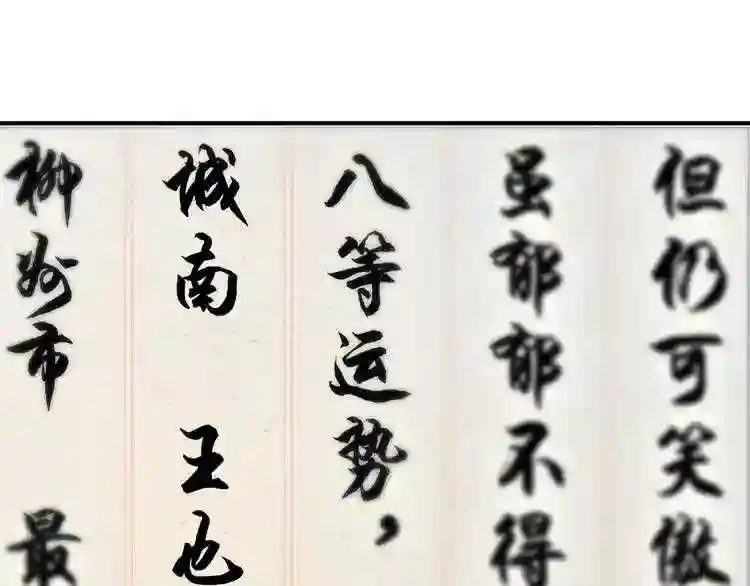 柳州市 最
城南 王也
八等运势，
虽郁郁不得
但仍可笑傲